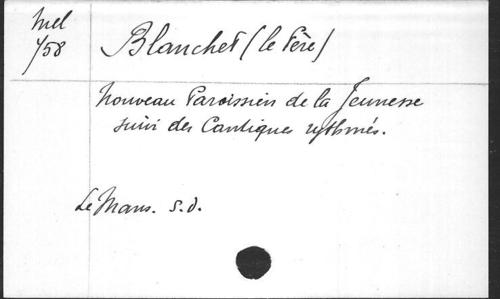 Mel
/58
Blanchet (le Père)
Nouveau Paroissien de la Jeunesse
suivi des Cantiques rythmés.
Le Mans. s.d.